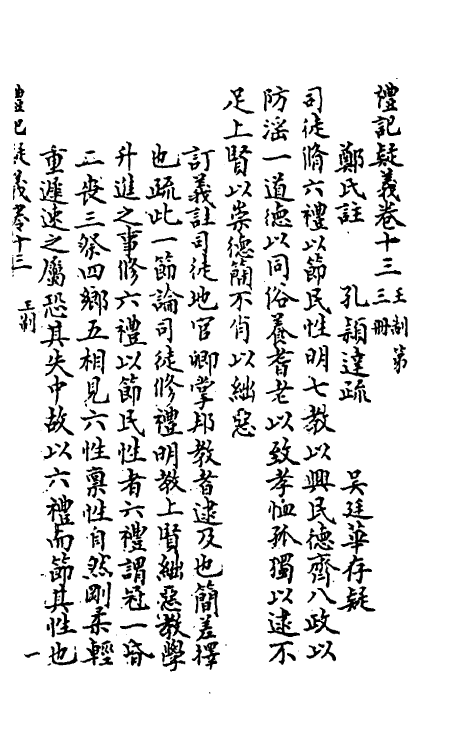 禮記疑義卷十三 王制第三冊
鄭氏註 孔穎達疏 吴廷華存疑
司徒脩六禮以節民性明七教以興民德齊八政以
防淫一道德以同俗養耆老以致孝恤孤獨以逮不
足上賢以崇德簡不肖以絀惡
訂義註司徒地官卿掌邦教者逮及也簡差擇
也疏此一節論司徒修禮明教上賢絀惡教學
升進之事修六禮以節民性者六禮謂冠一昏
二喪三祭四鄉五相見六性稟性自然剛柔輕
重遲速之屬恐其失中故以六禮而節其性也
禮記疑義卷十三 王制 一